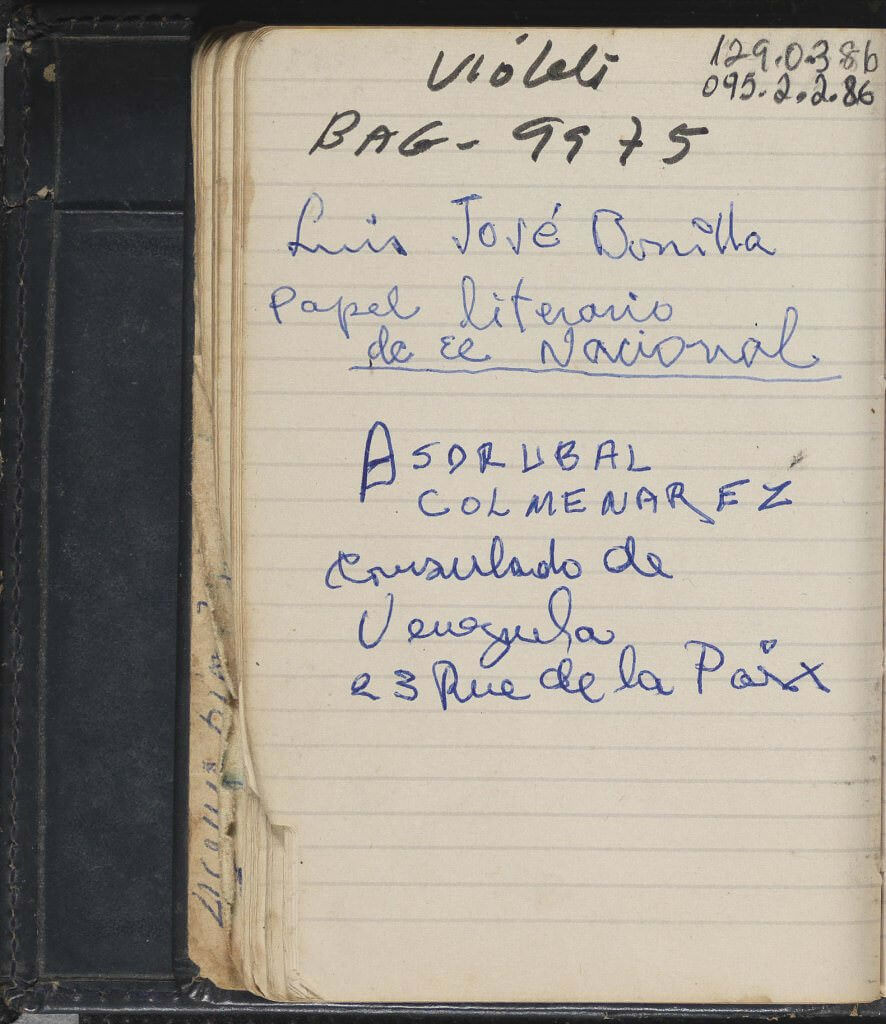 129.0.386
095.2.2.86
BAG - 9975
Luis José Bonilla
Papel literario
de El Nacional
ASDRUBAL
COLMENAREZ
Consulado de
Venezuela
23 Rue de la Paix